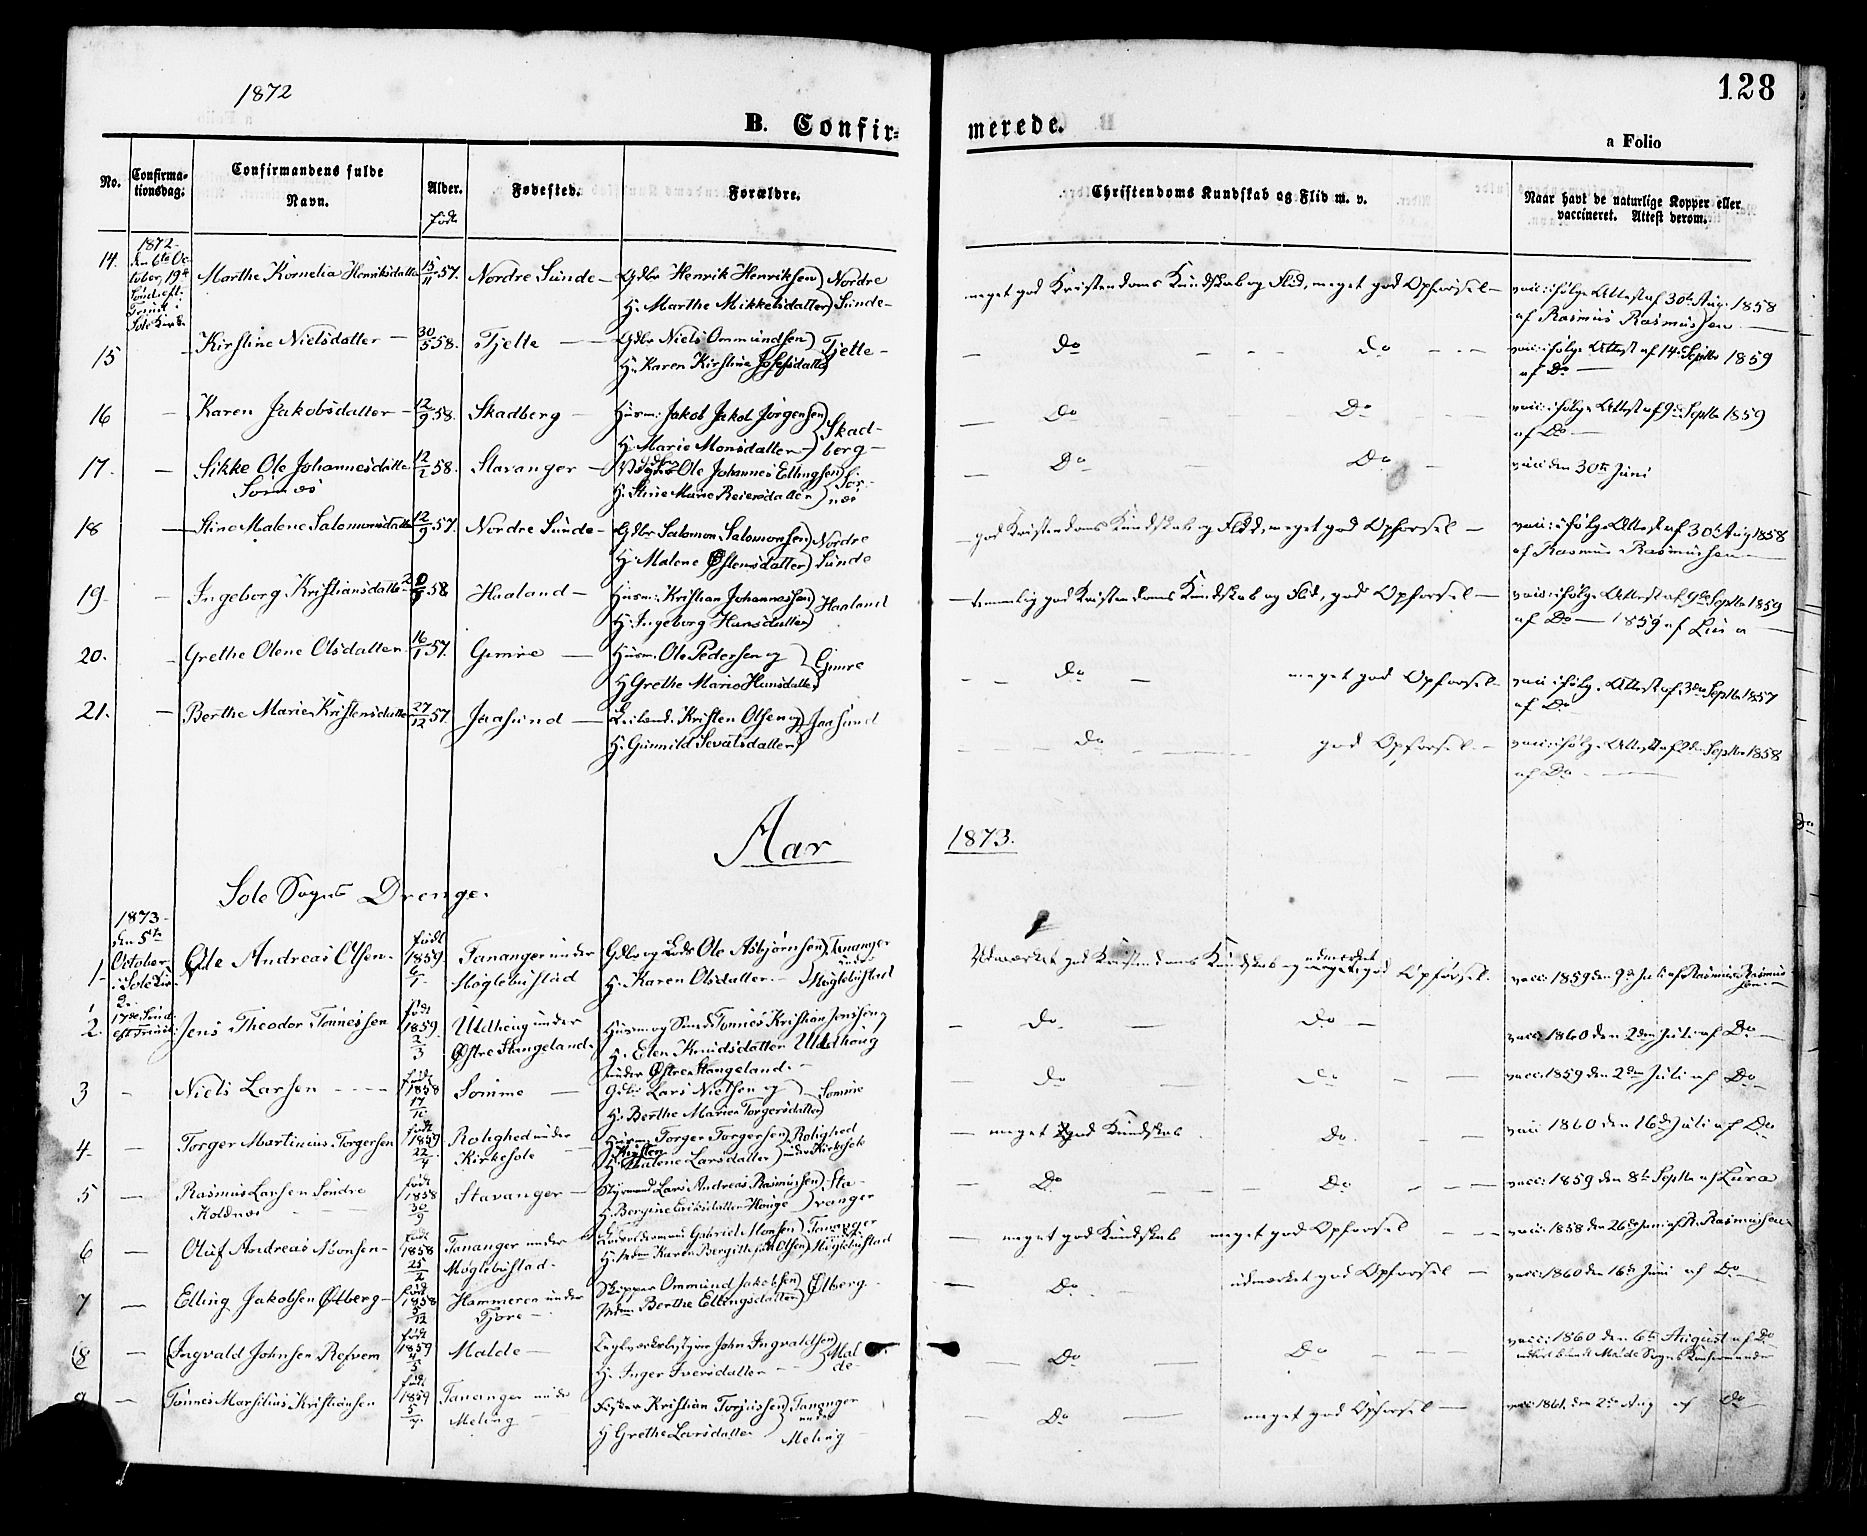 1872
128
B. Confir-
merede.
a Folio
No.
Confirma-
tionsdag.
Confirmandens fulde
Navn.
Alder.
født
Fødested.
Forældre.
Christendoms Kundskab og Flid m. v.
Naar havt de naturlige Kopper eller
vaccineret. Attest derom.
1872
den 6te Oc-
tober, 19de
Sønd. eft.
Trinit. i
Sole Kirke
14. Marthe Kornelia Henriksdatter 15/11 57. Nordre Sunde Gdbr Henrik Henriksen Nordre
H. Marthe Mikkelsdatter Sunde
meget god Kristendoms Kundskab og Flid, meget god Opførsel vacc: ifølge Attest af 30te Aug 1858
af Rasmus Rasmussen
15 Kirstine Nielsdatter 30/5 58. Tjelte Gdbr Niels Ommundsen Tjelte
H. Karen Kirstine Josefsdatter
Do Do vacc: ifølge Attest af 14de Septbr 1859
af Do
16 Karen Jakobsdatter 12/9 58. Skadberg Husm: Jakob Jakob Jørgensen Skad-
H. Marie Monsdatter berg
Do Do vacc: ifølge Attest af 9de Septbr 1859
af Do
17. Sikke Ole Johannesdatter 12/2 58. Stavanger Ole Johannes Ellingsen Søm-
Sømnes H. Stine Marie Reiersdatter nes
Do Do vacc den 30te Juni
18 Stine Malene Salomonsdatter 12/9 57. Nordre Sunde Gdbr Salomon Salomonsen Nordre
H. Malene Østensdatter Sunde
god Kristendoms Kundskab og Flid, meget god Opførsel vacc: ifølge Attest af 30te Aug 1858
af Rasmus Rasmussen
19. Ingeborg Kristiansdatter 58 Haaland Husm: Kristian Johannessen Haaland
H. Ingeborg Hansdatter
temmelig god Kristendoms Kundskab og Flid, god Opførsel vacc: ifølge Attest af 9de Septbr 1859
af Do 1859 af Lura
20. Grethe Olene Olsdatter 16/1 57. Gimre Husm. Ole Pedersen og Gimre
H Grethe Marie Hansdatter
Do meget god Opførsel vacc: ifølge Attest af 3die Septbr 1857
af Do
21. Berthe Marie Kristensdatter 27/12 57. Jaasund Leilænd. Kristen Olsen og Jaasund
H. Gunnild Sevatsdatter
Do god Opførsel. vacc: ifølge Attest af 2den Septbr 1858
af Do
Aar 1873.
Sole Sogns Drenge.
1873
den 5te
October
i Sole Kir-
17de Sønd.
eft Trinit.
1. Ole Andreas Olsen. født 1859 6/1. Tananger under Gdbr og Lods Ole Asbjørnsen Tananger
Møglebustad H. Karen Olsdatter under Møglebustad
Udmærket god Kristendoms Kundskab og udmærket god Opførsel. vacc: 1859 den 9de Juli af Rasmus Rasmus-
sen
2. Jens Theodor Tønnessen født 1859. 2/3 Uldhoug under Husm og Smed Tønnes Kristian Jenssen og
Østre Stangeland. H. Elen Knudsdatter Uldhoug
under Østre Stangeland.
Do Do vacc: 1860 den 2den Juli af Do
3 Niels Larsen født 1858 17/10 Sømme Gdbr Lars Nielsen og Sømme
H. Berthe Marie Torgersdatter
Do Do vacc: 1859 den 2den Juli af Do
4. Torger Martinius Torgersen født 1859 22/4 Rolighed under Husm Torger Torgersen Rolighed
Kirkesole H. Malene Larsdatter under Kirkesole
meget god Kundskab Do vacc 1860 den 16de Juli af Do
5 Rasmus Larsen Søndre født 1858 30/9 Stavanger Styrmand Lars Andreas Rasmussen Sta-
Koldnes H. Bergine Eriksdatter Kønige vanger
Do Do vacc: 1859 den 8de Septbr af Lura
6 Oluf Andreas Monsen født 1858 25/2 Tananger under Gabriel Monsen Tananger
Møglebustad. Karen Bergitte Olsen Møglebustad
meget god Kundskab meget god Opførsel vacc: 1858 den 26de Juni af R. Rasmussen
7 Elling Jakobsen Østberg født 1858 5/12 Hammeren under Skipper Ommund Jakobsen Østberg.
Tjore Mdm Berthe Ellingsdatter
Do udmærket god Opførsel vacc: 1860 den 16de Juni af Do
8 Ingvald Johnsen Refvem født 1859 4/5 Malde Teglværksbestyrer John Ingvaldsen Mal-
H. Inger Iversdatter de
Do Do vacc: 1860 den 6te August af Do
udført blandt Malde Sogns Konfirmander
9 Tønnes Marsilius Kristiansen født 1859 5/7 Tananger under Fisker Kristian Torjussen Tananger
Meling H Grethe Larsdatter under Meling
Do meget god Opførsel vacc: 1861 den 2den Aug af Do